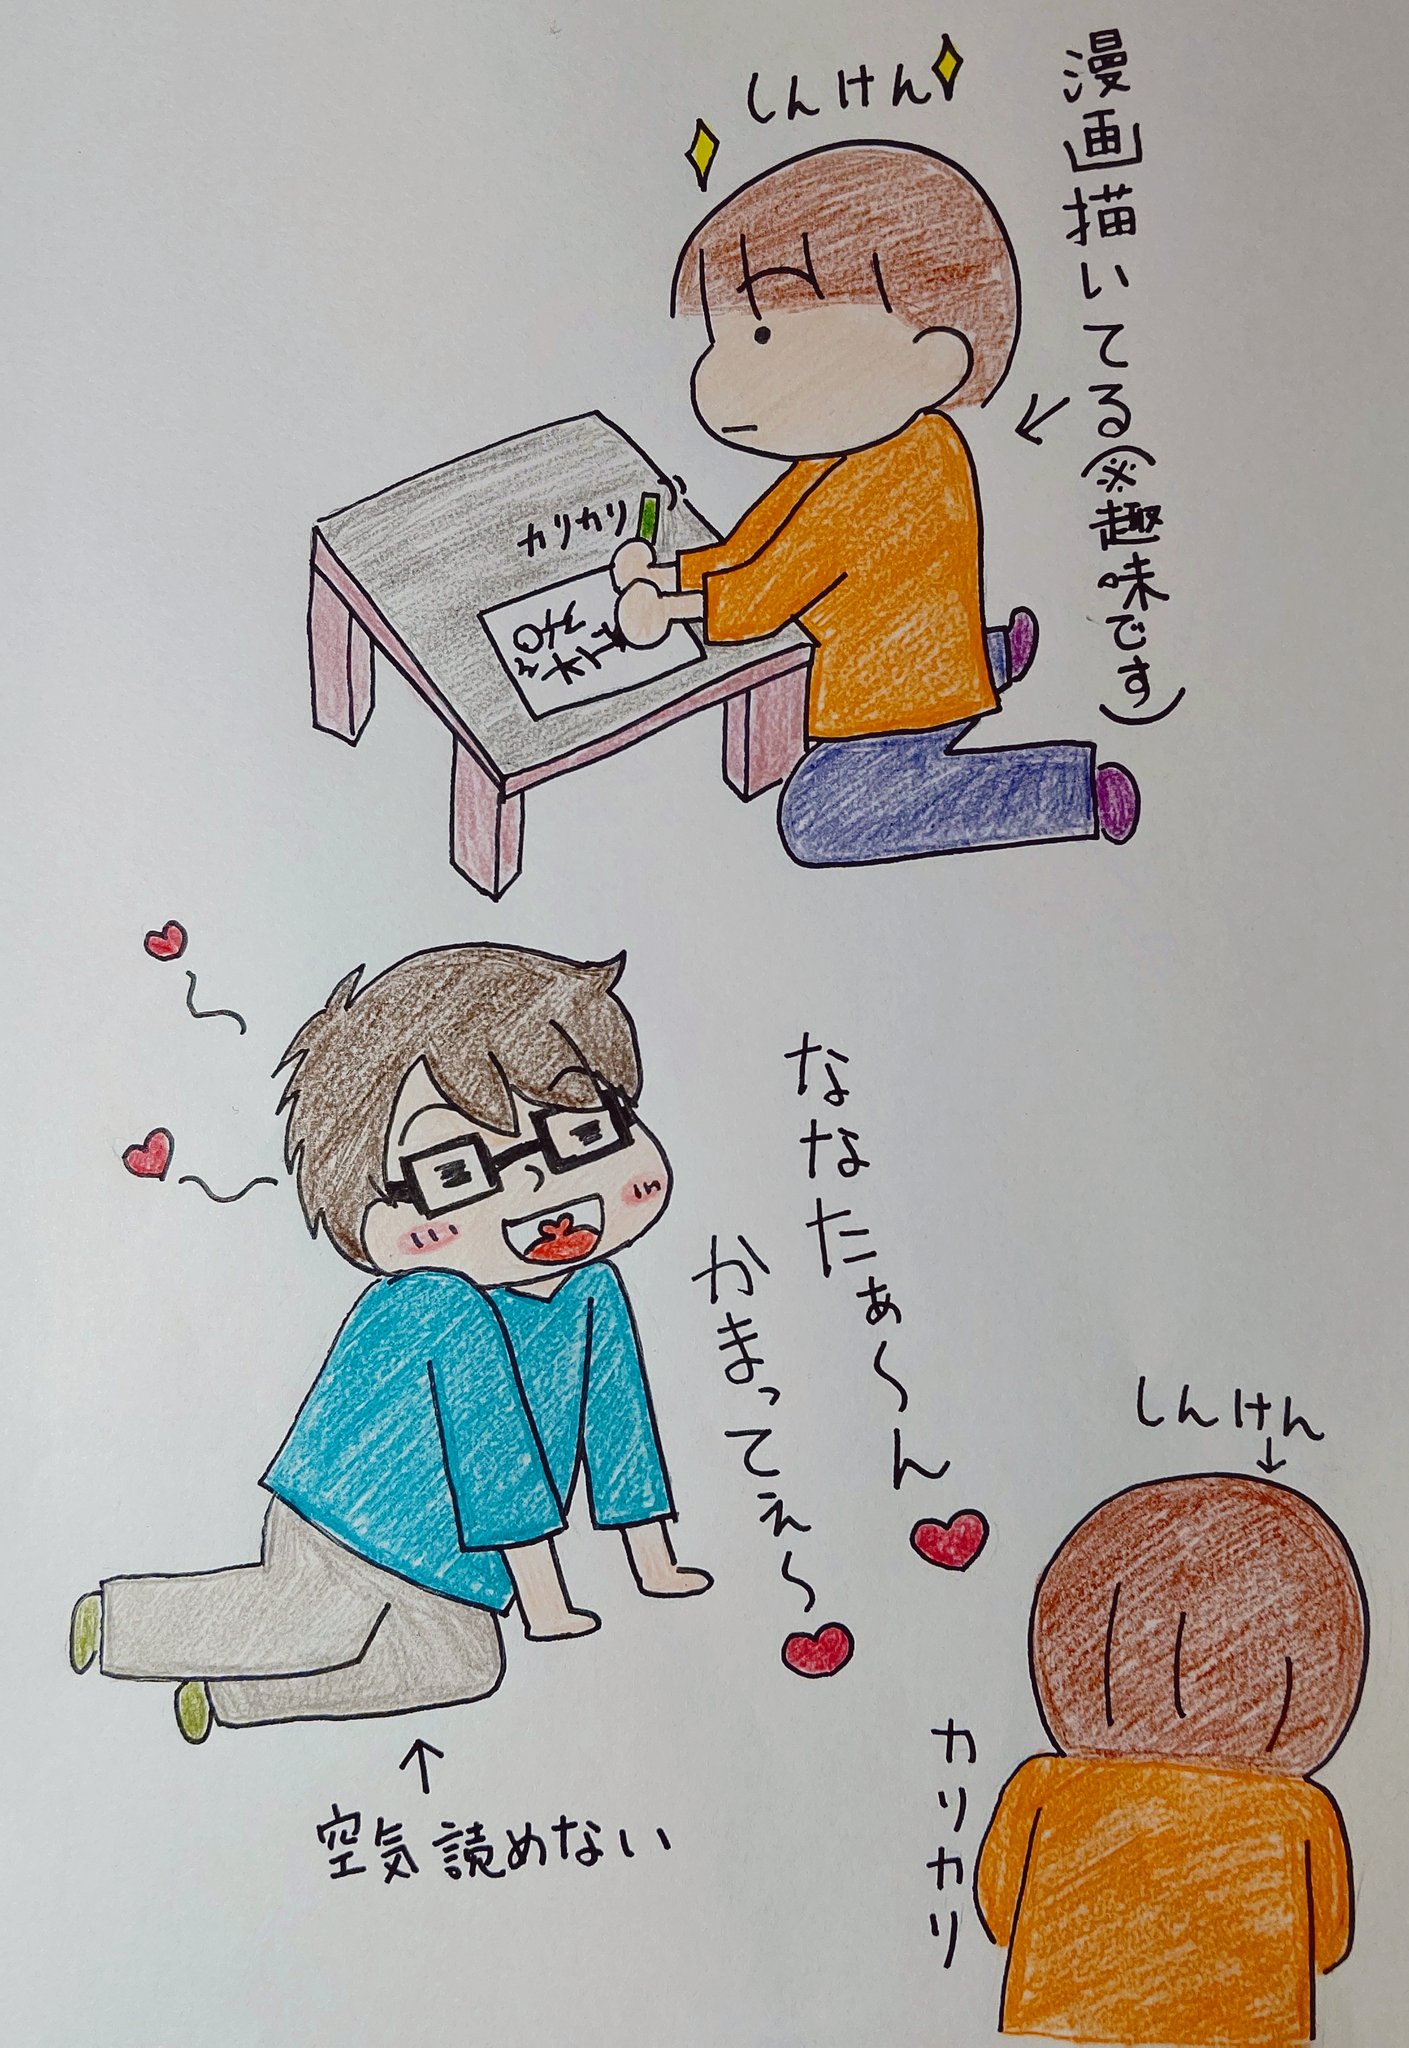 漫画描いてる(※趣味です)
しんけん
カリカリ
ななたぁ〜ん
かまってぇ〜
空気読めない
しんけん
カリカリ